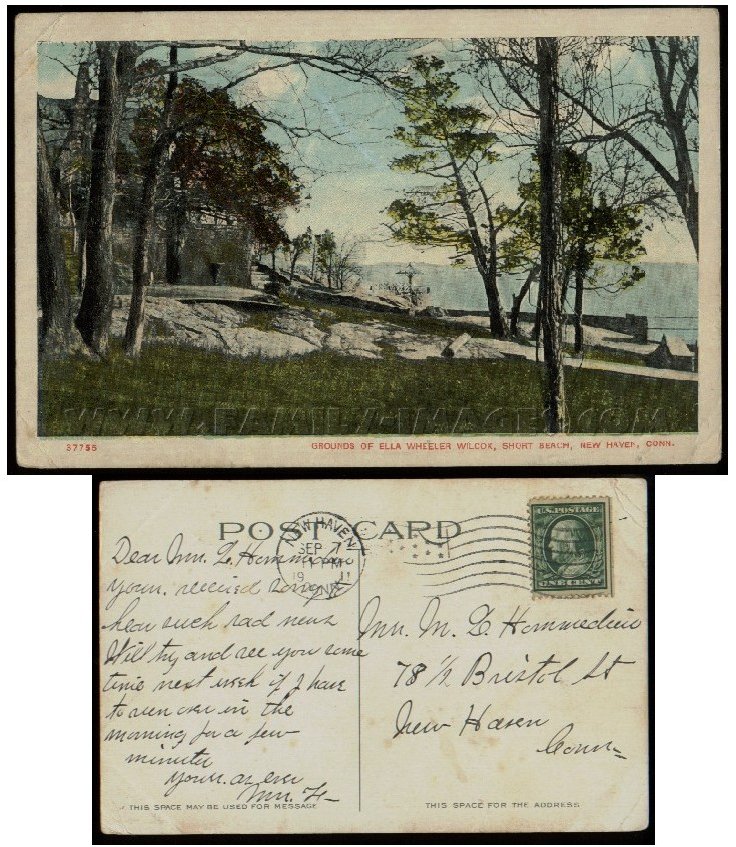 WWW.FAMILY-IMAGES.COM
37755 GROUNDS OF ELLA WHEELER WILCOX, SHORT BEACH, NEW HAVEN, CONN.
POST CARD
NEW HAVEN
SEP 7
1 PM
1911
CONN.
U.S. POSTAGE
ONE CENT
Dear Mrs. L'Hommedieu
Yours. received sorry to
hear such sad news
Will try and see you some
time next week if I have
to run over in the
morning for a few
minutes
Yours. as ever
Mrs. H-
Mrs. M. L'Hommedieu
78 1/2 Bristol St
New Haven
Conn-
THIS SPACE MAY BE USED FOR MESSAGE
THIS SPACE FOR THE ADDRESS